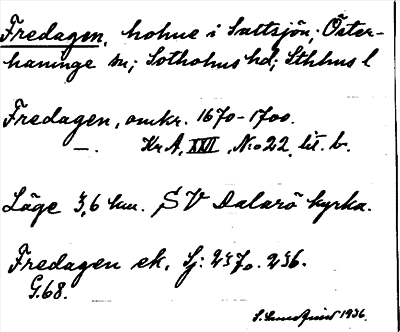 Fredagen, holme i Saltsjön; Öster-
haninge sn; Sotholms hd; Sthlms l
Fredagen, omkr. 1670-1700.
—. Kr. A, XXII, N:o 22 lit. b.
Läge 3,6 km. SV Dalarö kyrka.
Fredagen ek. Sj: 237o. 236.
G.68.
S. Lundqvist 1936.